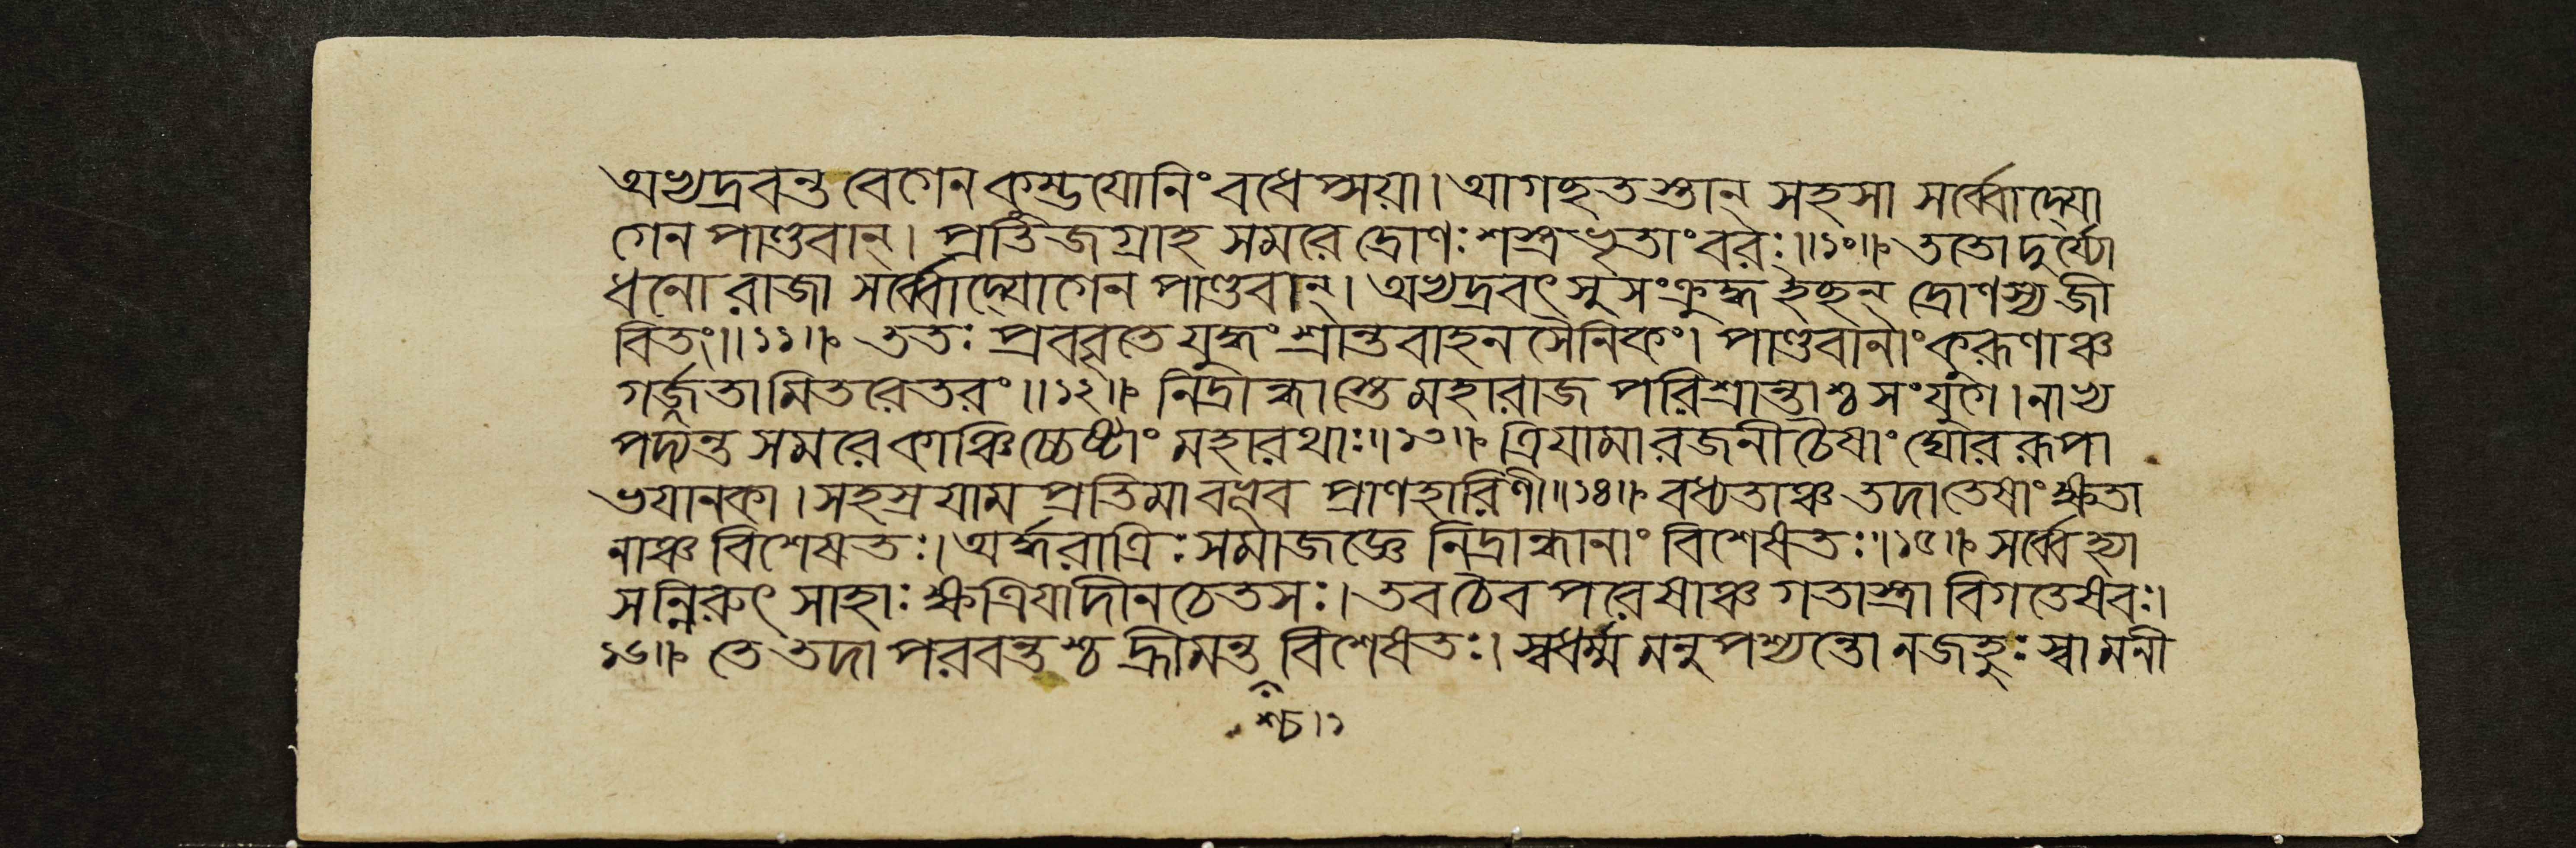 অভ্যদ্রবন্ত বেগেন কুম্ভযোনিং বধেপ্সয়া। আগচ্ছতস্তান্ সহসা সর্ব্বোদ্যো
গেন পাণ্ডবান্। প্রতিজগ্রাহ সমরে দ্রোণঃ শস্ত্রভৃতাং বরঃ॥১০॥ ততো দুর্য্যো
ধনো রাজা সর্ব্বোদ্যোগেন পাণ্ডবান্। অভ্যদ্রবৎ সুসংক্রুদ্ধ ইচ্ছন্ দ্রোণস্য জী
বিতং॥১১॥ ততঃ প্রববৃতে যুদ্ধং শ্রান্তবাহনসৈনিকং। পাণ্ডবানাং কুরূণাঞ্চ
গর্জ্জতামিতরেতরং॥১২॥ নিদ্রান্ধাস্তে মহারাজ পরিশ্রান্তাশ্চ সংযুগে। নাভ্য
পদ্যন্ত সমরে কাঞ্চিচ্চেষ্টাং মহারথাঃ॥১৩॥ ত্রিযামা রজনী চৈষাং ঘোররূপা
ভয়ানকা। সহস্রযাম প্রতিমা বভূব প্রাণহারিণী॥১৪॥ বধ্যতাঞ্চ তদা তেষাং ক্ষতা
নাঞ্চ বিশেষতঃ। অর্দ্ধরাত্রিঃ সমাজজ্ঞে নিদ্রান্ধানাং বিশেষতঃ॥১৫॥ সর্ব্বে হ্যা
সন্নিরুৎসাহাঃ ক্ষত্রিয়া দীনচেতসঃ। তব চৈব পরেষাঞ্চ গতাস্ত্রা বিগতেষবঃ।
১৬॥ তে তদা পরবন্তশ্চ হ্রীমন্ত বিশেষতঃ। স্বধর্ম্মমনুপশ্যন্তো ন জহুঃ স্বামনী
শ্চ।১